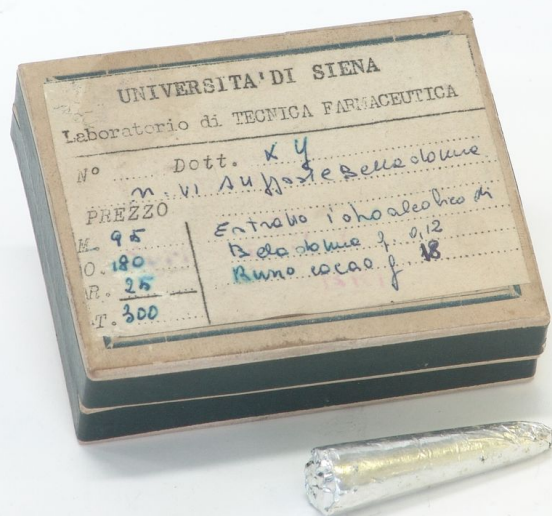 UNIVERSITA' DI SIENA
Laboratorio di TECNICA FARMACEUTICA
N° Dott. X Y
n. VI Suppostebelladonna
PREZZO
M. 95
O. 180
R. 25
T. 300
Estratto idroalcolico di
Beladonna g 0,12
Burro cacao g 18